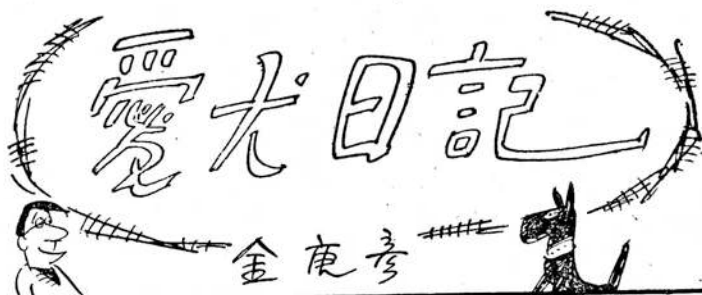 愛犬日記
金庚彦